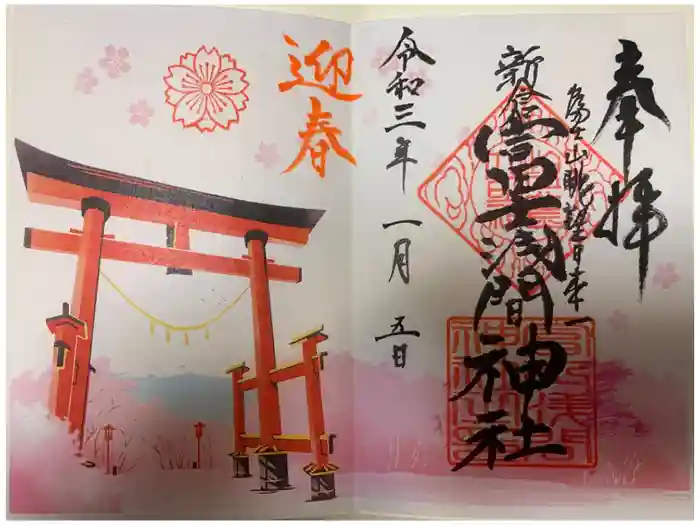 奉拝
富士山眺望日本一
新倉
富士浅間神社
令和三年 一月 五日
迎春